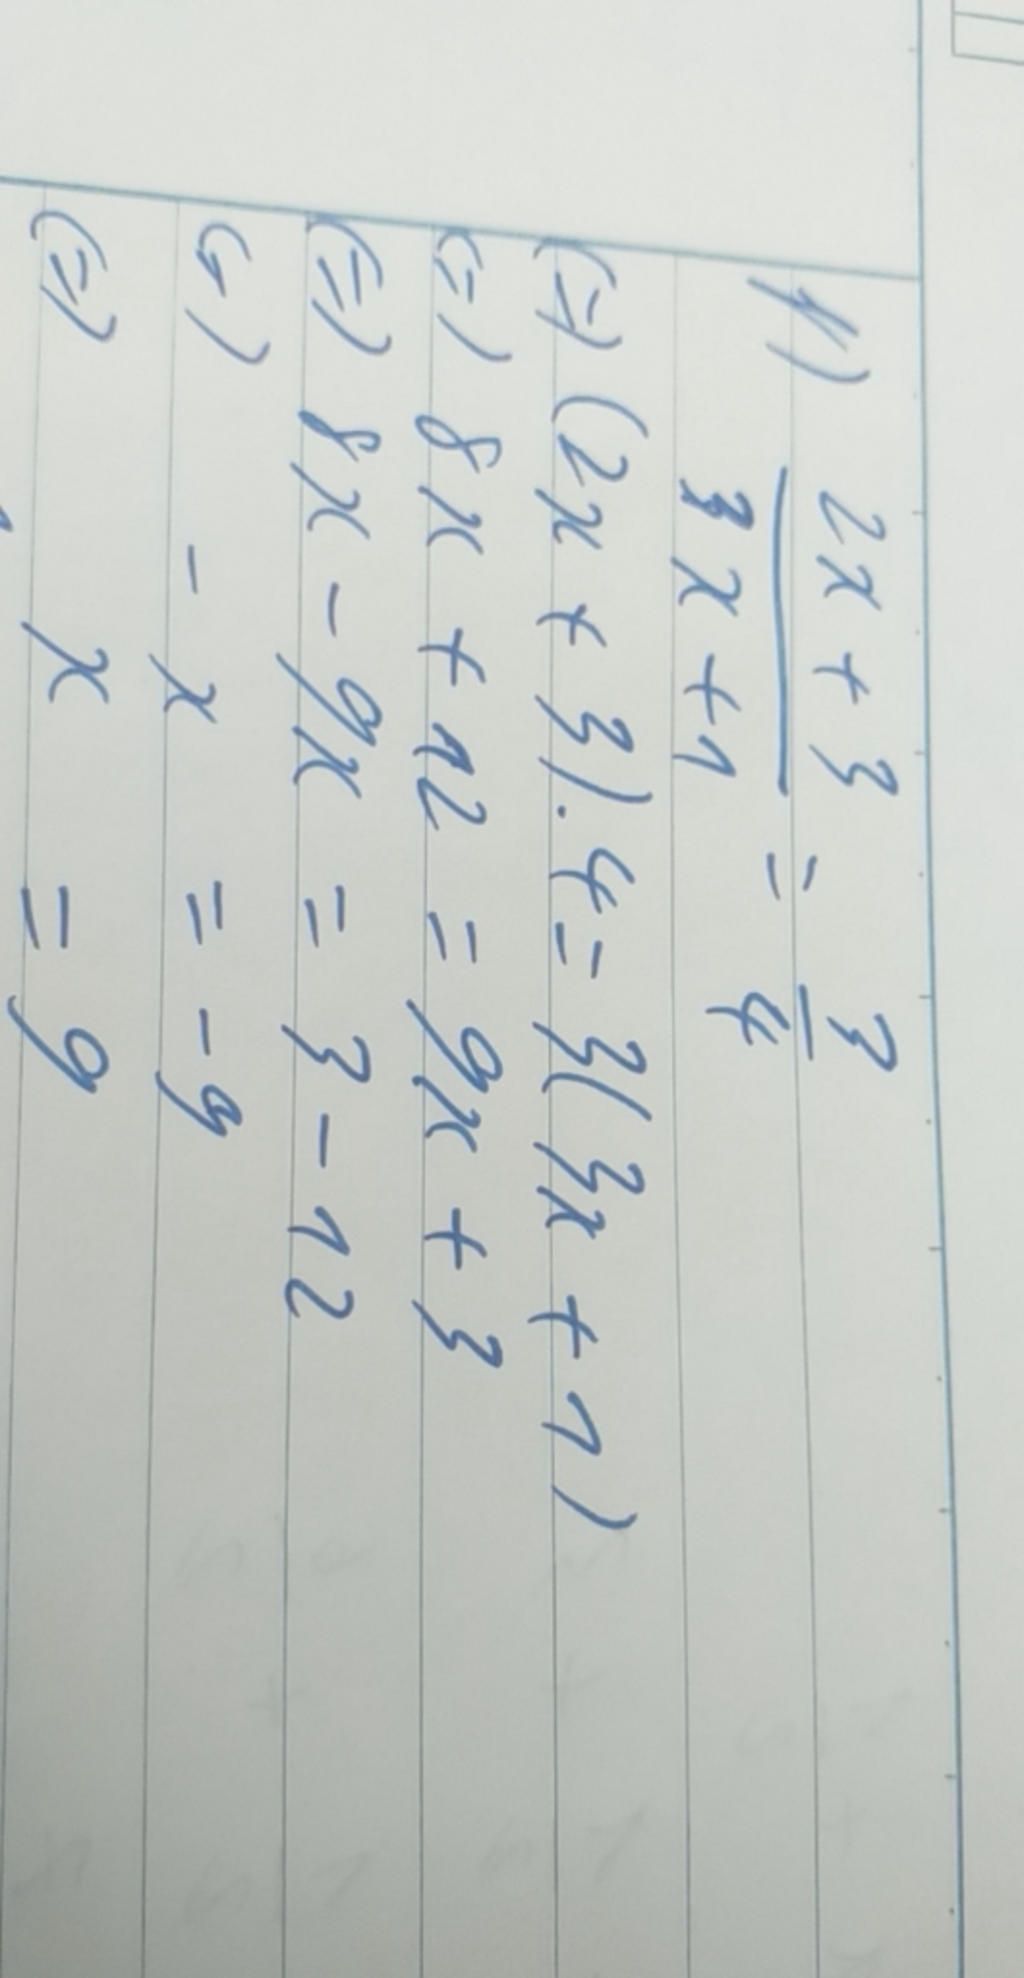 1) (2x + 3)/(3x + 1) = 3/4
(=) (2x + 3).4 = 3(3x + 1)
(=) 8x + 12 = 9x + 3
(=) 8x - 9x = 3 - 12
(=) - x = - 9
(=) x = 9